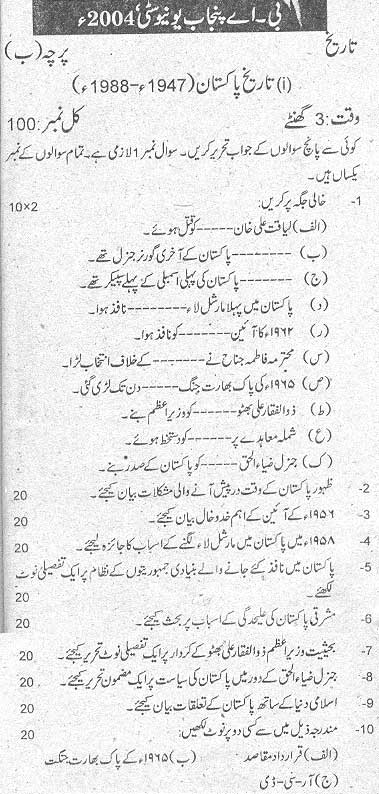 بی۔ اے پنجاب یونیورسٹی، 2004ء
تاریخ
پرچہ (ب)
(i) تاریخ پاکستان (1947ء-1988ء)
وقت: 3 گھنٹے
کل نمبر: 100
کوئی سے پانچ سوالوں کے جواب تحریر کریں۔ سوال نمبر 1 لازمی ہے۔ تمام سوالوں کے نمبر
یکساں ہیں۔
1- خالی جگہ پر کریں: 10×2
(الف) لیاقت علی خان-----کو قتل ہوئے۔
(ب) --------- پاکستان کے آخری گورنر جنرل تھے۔
(ج) -------- پاکستان کی پہلی اسمبلی کے پہلے سپیکر تھے۔
(د) پاکستان میں پہلا مارشل لاء--------نافذ ہوا۔
(ر) ۱۹۶۲ء کا آئین-------کو نافذ ہوا۔
(س) محترمہ فاطمہ جناح نے -------کے خلاف انتخاب لڑا۔
(ص) ۱۹۶۵ء کی پاک بھارت جنگ-----دن تک لڑی گئی۔
(ط) ذوالفقار علی بھٹو------کو وزیر اعظم بنے۔
(ع) شملہ معاہدے پر-------کو دستخط ہوئے۔
(ک) جنرل ضیاء الحق-----کو پاکستان کے صدر بنے۔
2- ظہور پاکستان کے وقت درپیش آنے والی مشکلات بیان کیجئے۔ 20
3- ۱۹۵۶ء کے آئین کے اہم خدوخال بیان کیجئے۔ 20
4- ۱۹۵۸ء میں پاکستان میں مارشل لاء لگنے کے اسباب کا جائزہ لیجئے۔ 20
5- پاکستان میں نافذ کئے جانے والے بنیادی جمہوریتوں کے نظام پر ایک تفصیلی نوٹ
لکھئے۔ 20
6- مشرقی پاکستان کی علیحدگی کے اسباب پر بحث کیجئے۔ 20
7- بحیثیت وزیر اعظم ذوالفقار علی بھٹو کے کردار پر ایک تفصیلی نوٹ تحریر کیجئے۔ 20
8- جنرل ضیاء الحق کے دور میں پاکستان کی سیاست پر ایک مضمون تحریر کیجئے۔ 20
9- اسلامی دنیا کے ساتھ پاکستان کے تعلقات بیان کیجئے۔ 20
10- مندرجہ ذیل میں سے کسی دو پر نوٹ لکھیں: 20
(الف) قرارداد مقاصد (ب) ۱۹۶۵ء کے پاک بھارت جنگ
(ج) آر-سی-ڈی